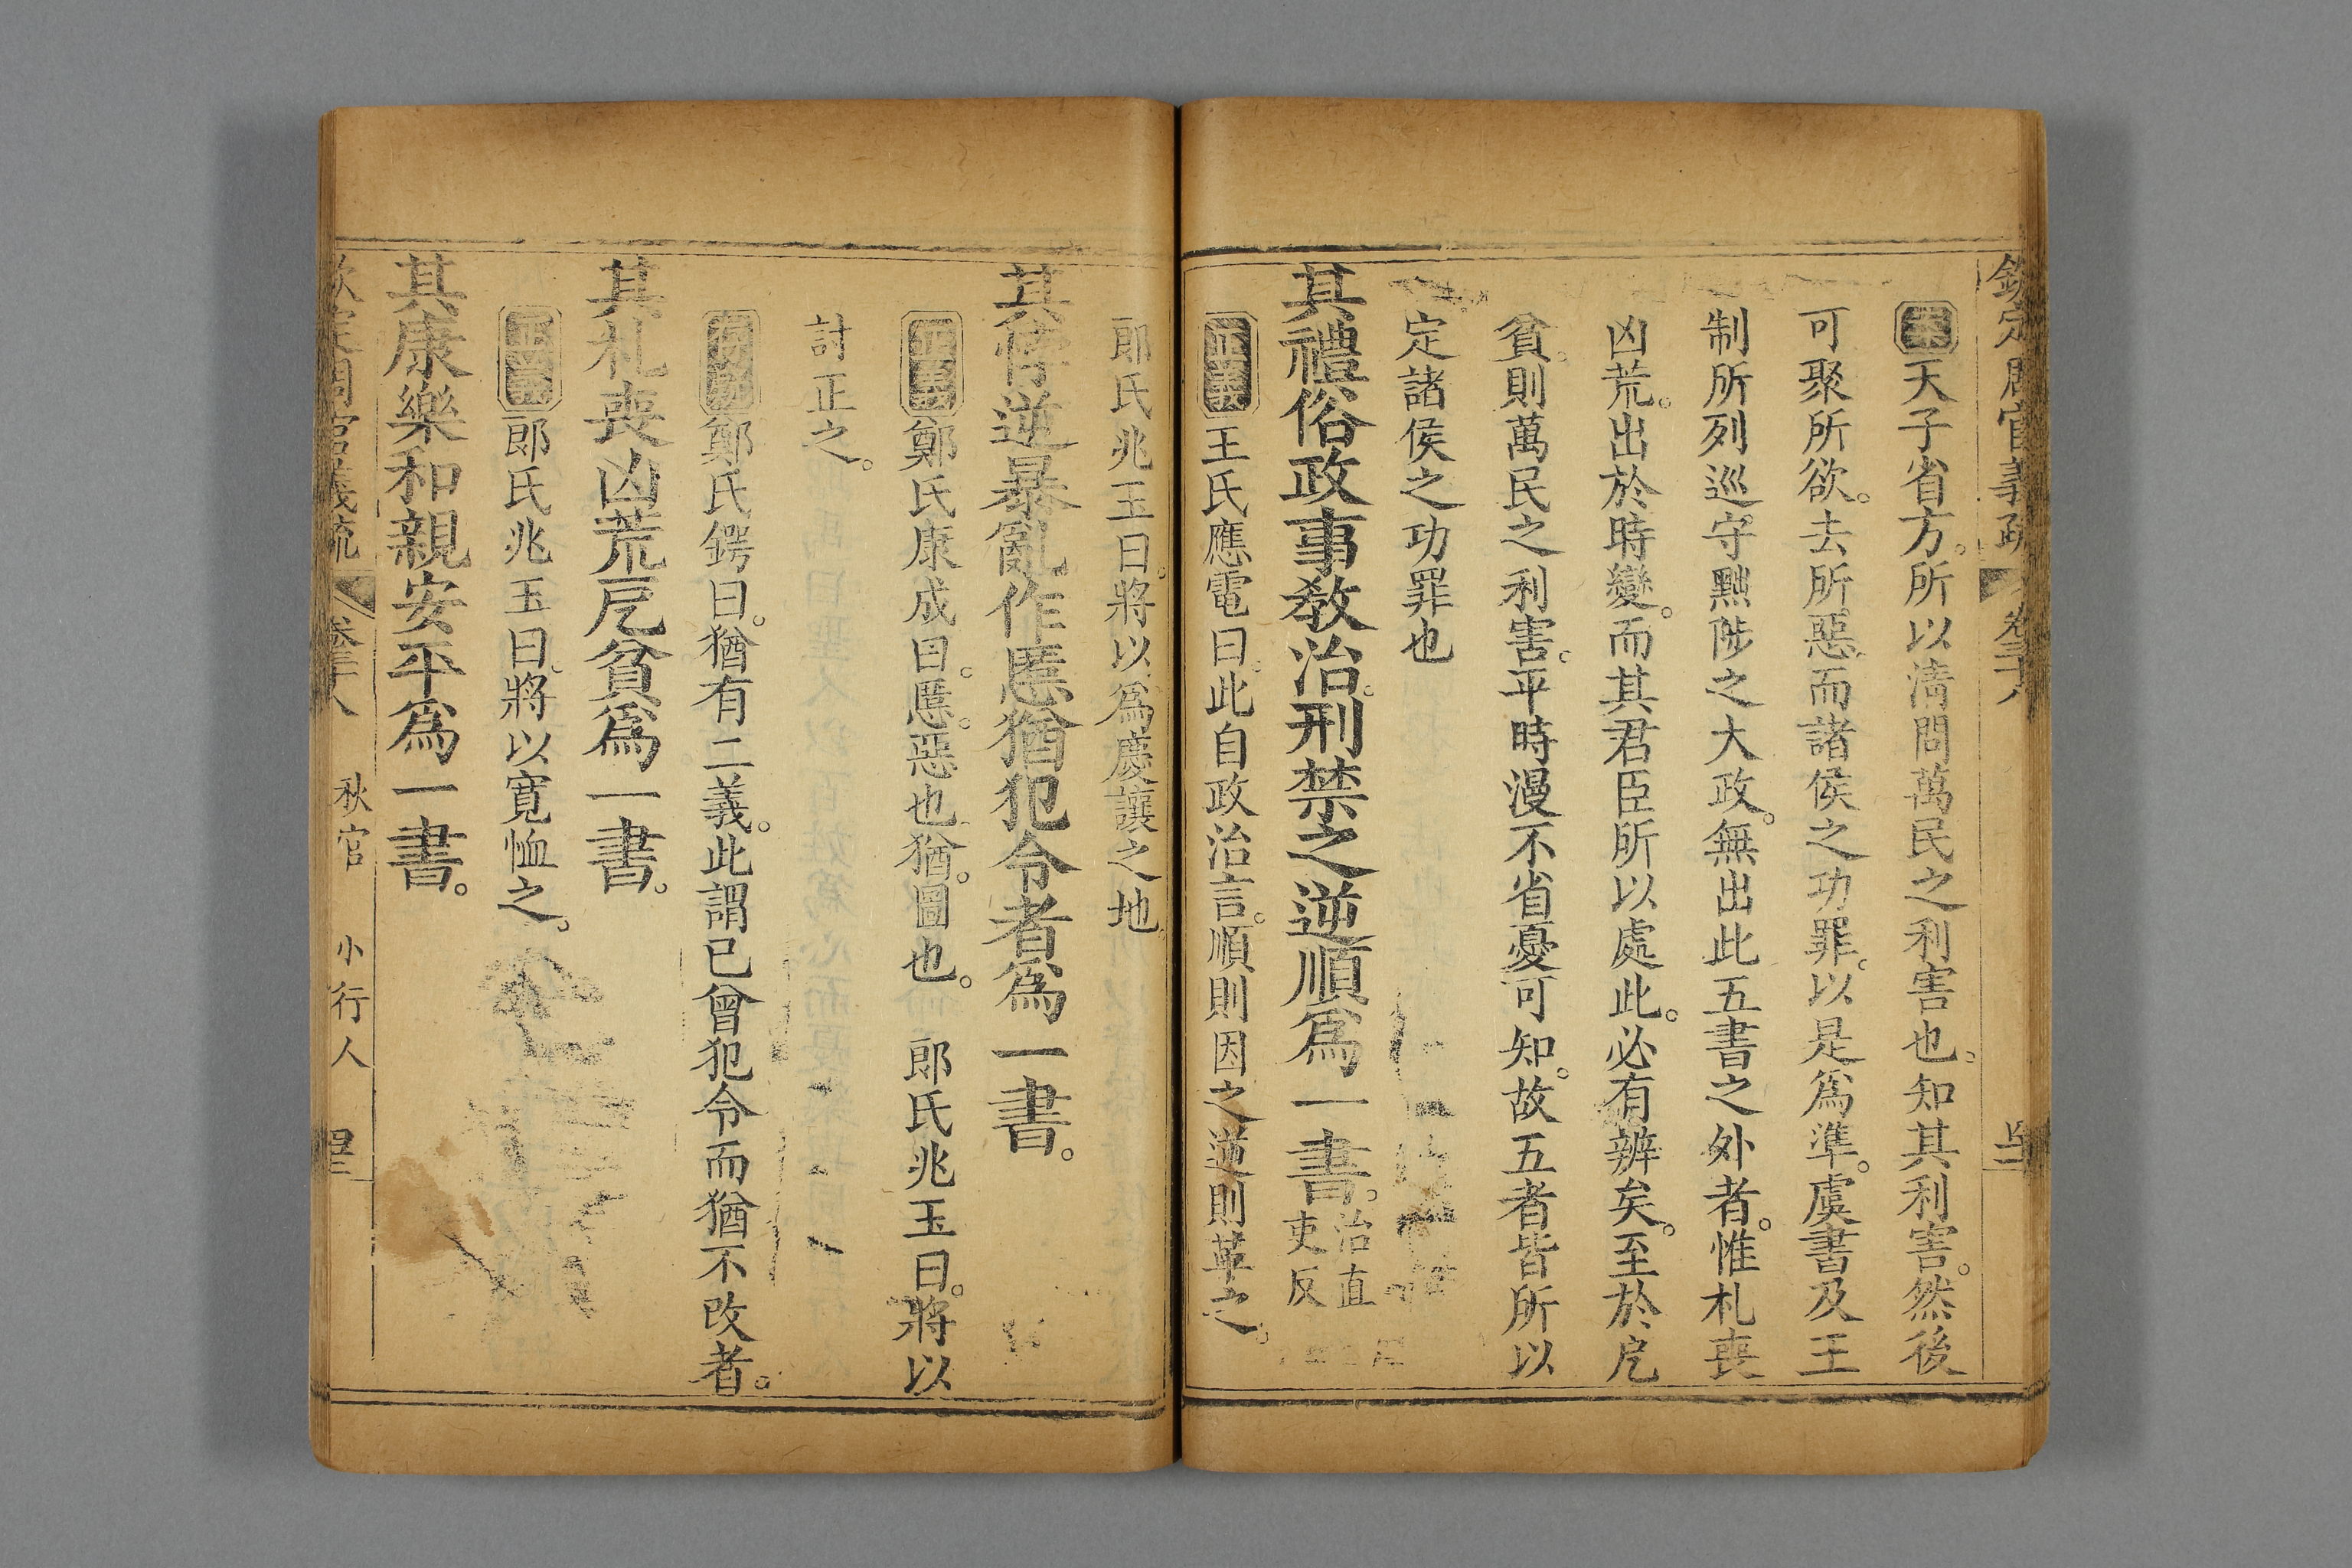 欽定周官義疏 卷三十八
案天子省方。所以清問萬民之利害也。知其利害。然後
可聚所欲。去所惡。而諸侯之功罪。以是爲準。虞書及王
制所列巡守黜陟之大政。無出此五書之外者。惟札喪
凶荒。出於時變。而其君臣所以處此。必有辨矣。至於戹
貧。則萬民之利害。平時漫不省憂可知。故五者皆所以
定諸侯之功罪也
其禮俗政事教治刑禁之逆順爲一書。治直吏反
正義王氏應電曰。此自政治言。順則因之逆則革之。
郎氏兆玉曰。將以爲慶讓之地。
其悖逆暴亂作慝猶犯令者爲一書。
正義鄭氏康成曰。慝。惡也猶。圖也。 郎氏兆玉曰。將以
討正之。
存疑鄭氏鍔曰。猶有二義。此謂已曾犯令而猶不改者。
其札喪凶荒戹貧爲一書。
正義郎氏兆玉曰。將以寬恤之。
其康樂和親安平爲一書。
欽定周官義疏 卷三十八 秋官 小行人